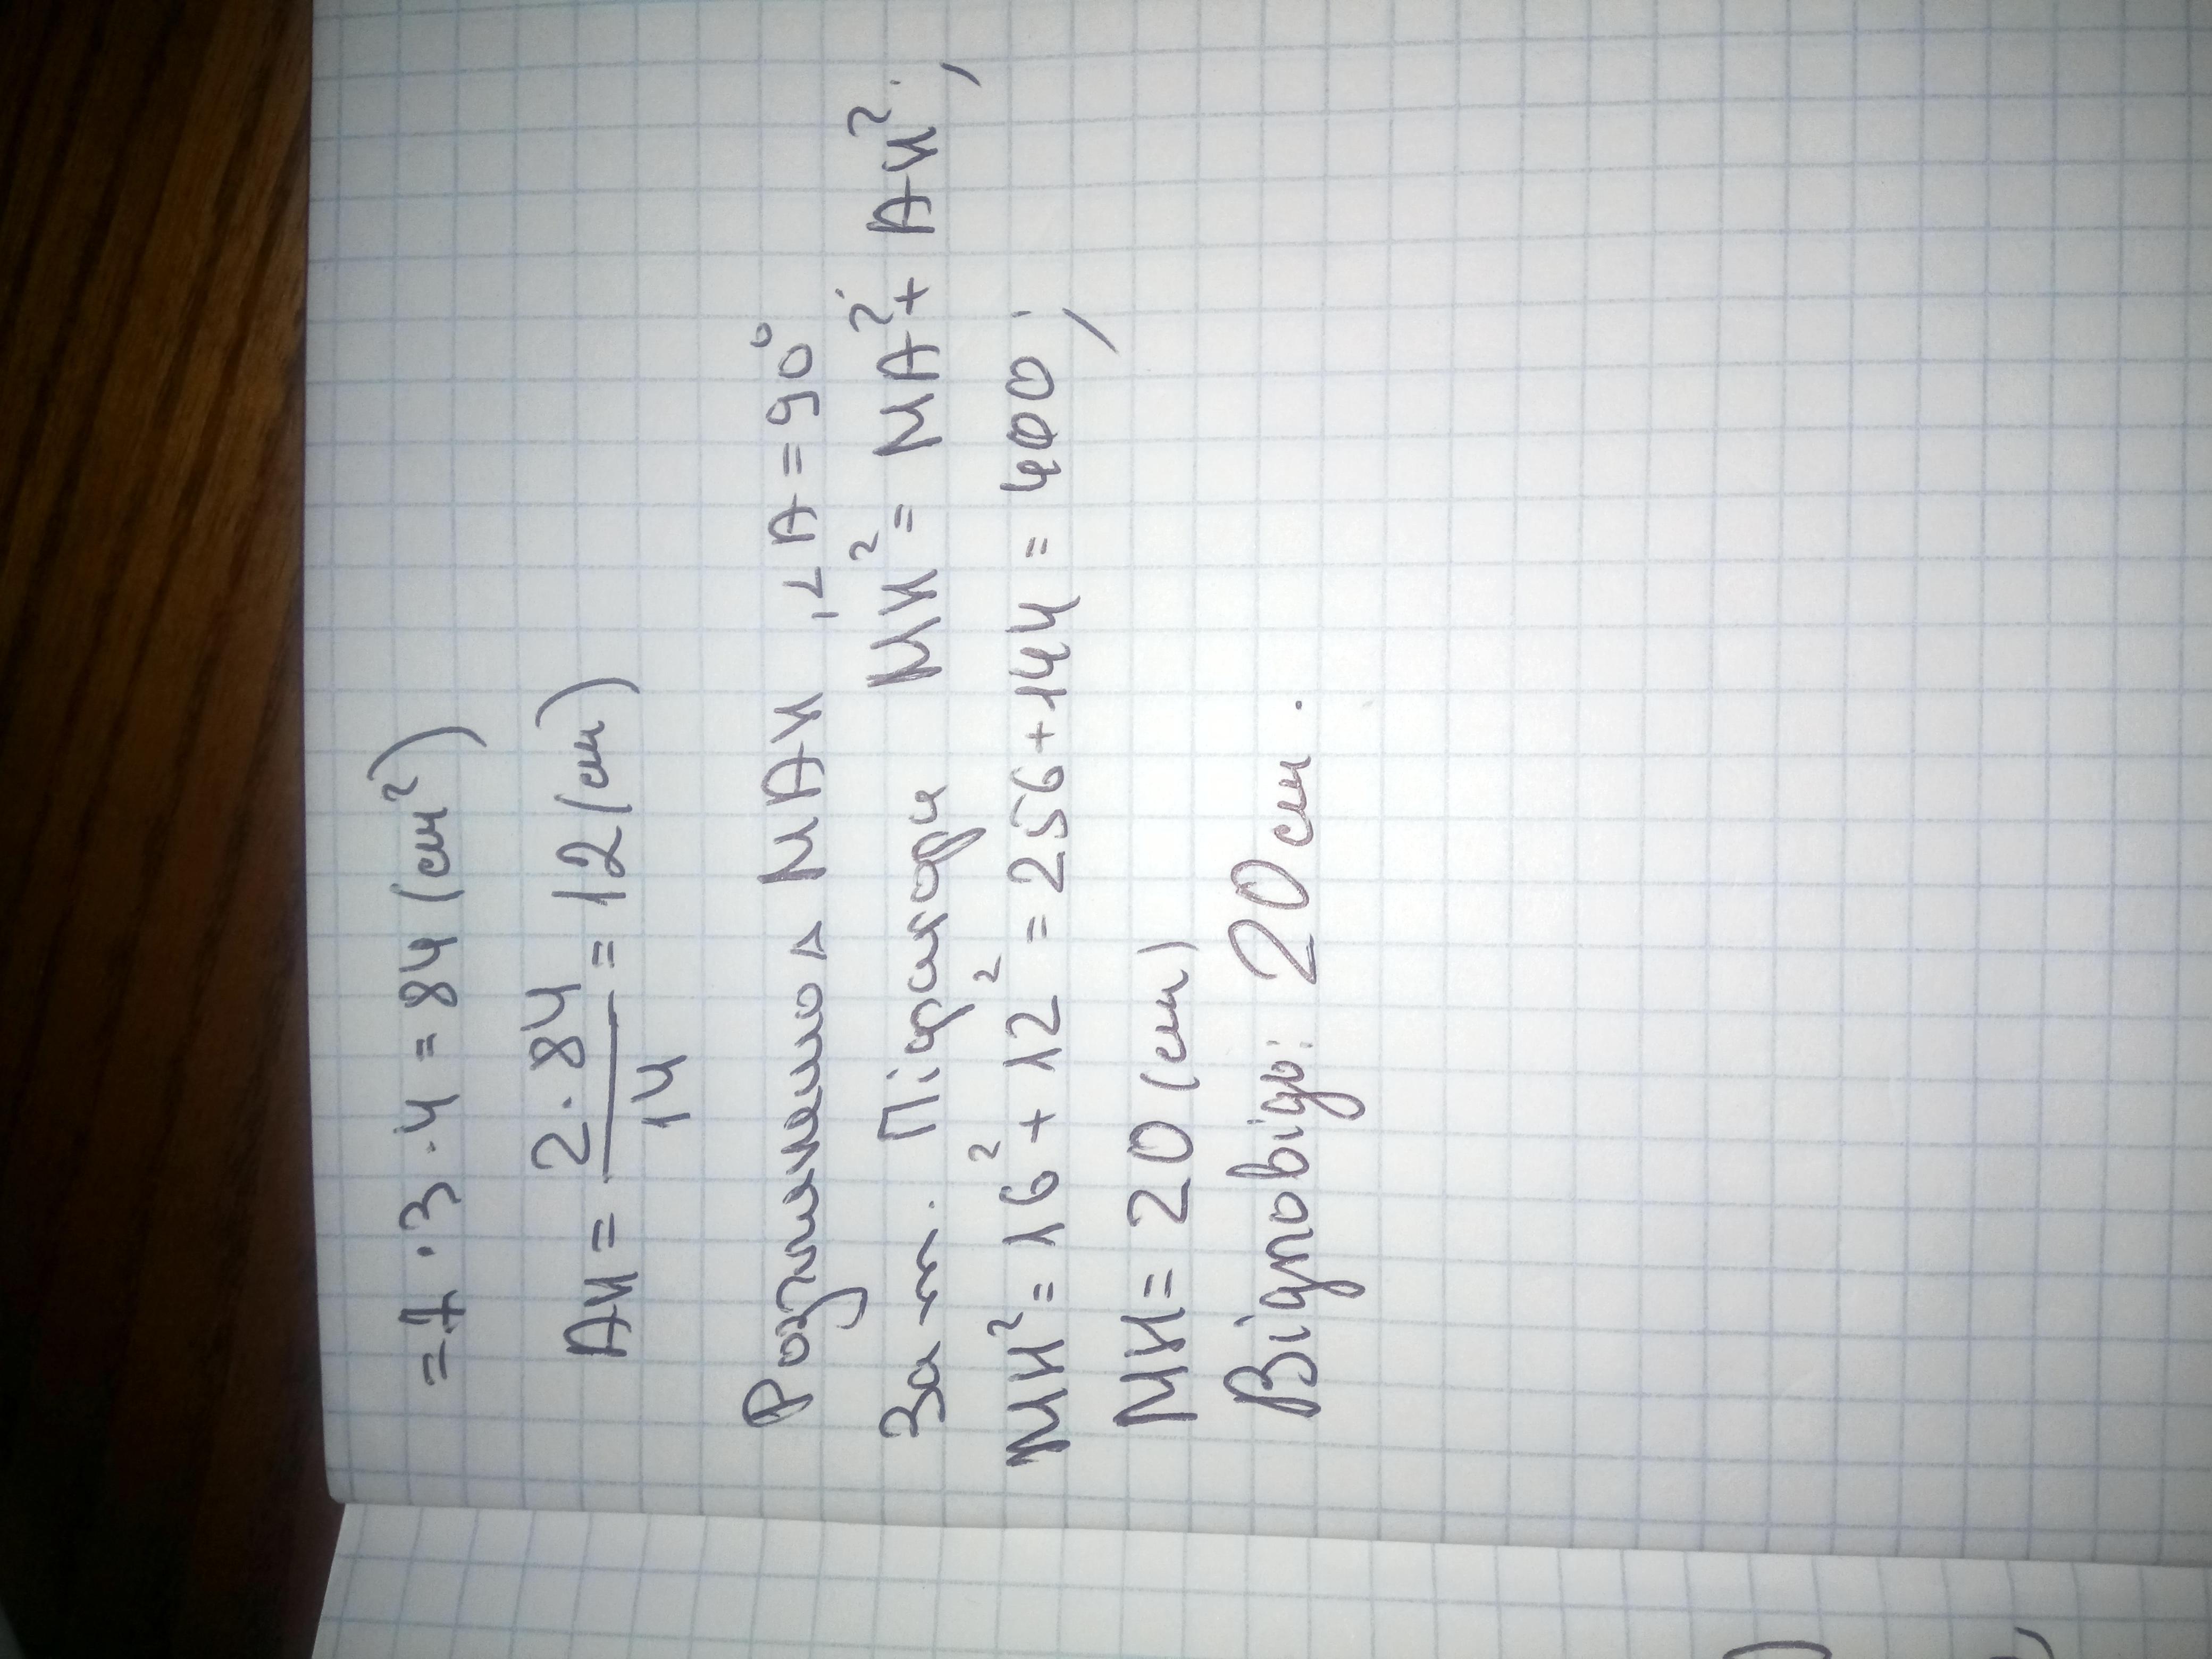 = 7 · 3 · 4 = 84 (см²)
АН = 2 · 84 / 14 = 12 (см)
Розглянемо △ МАН, ∠А = 90°
За т. Піфагора МН² = МА² + АН²;
МН² = 16² + 12² = 256 + 144 = 400;
МН = 20 (см)
Відповідь: 20 см.